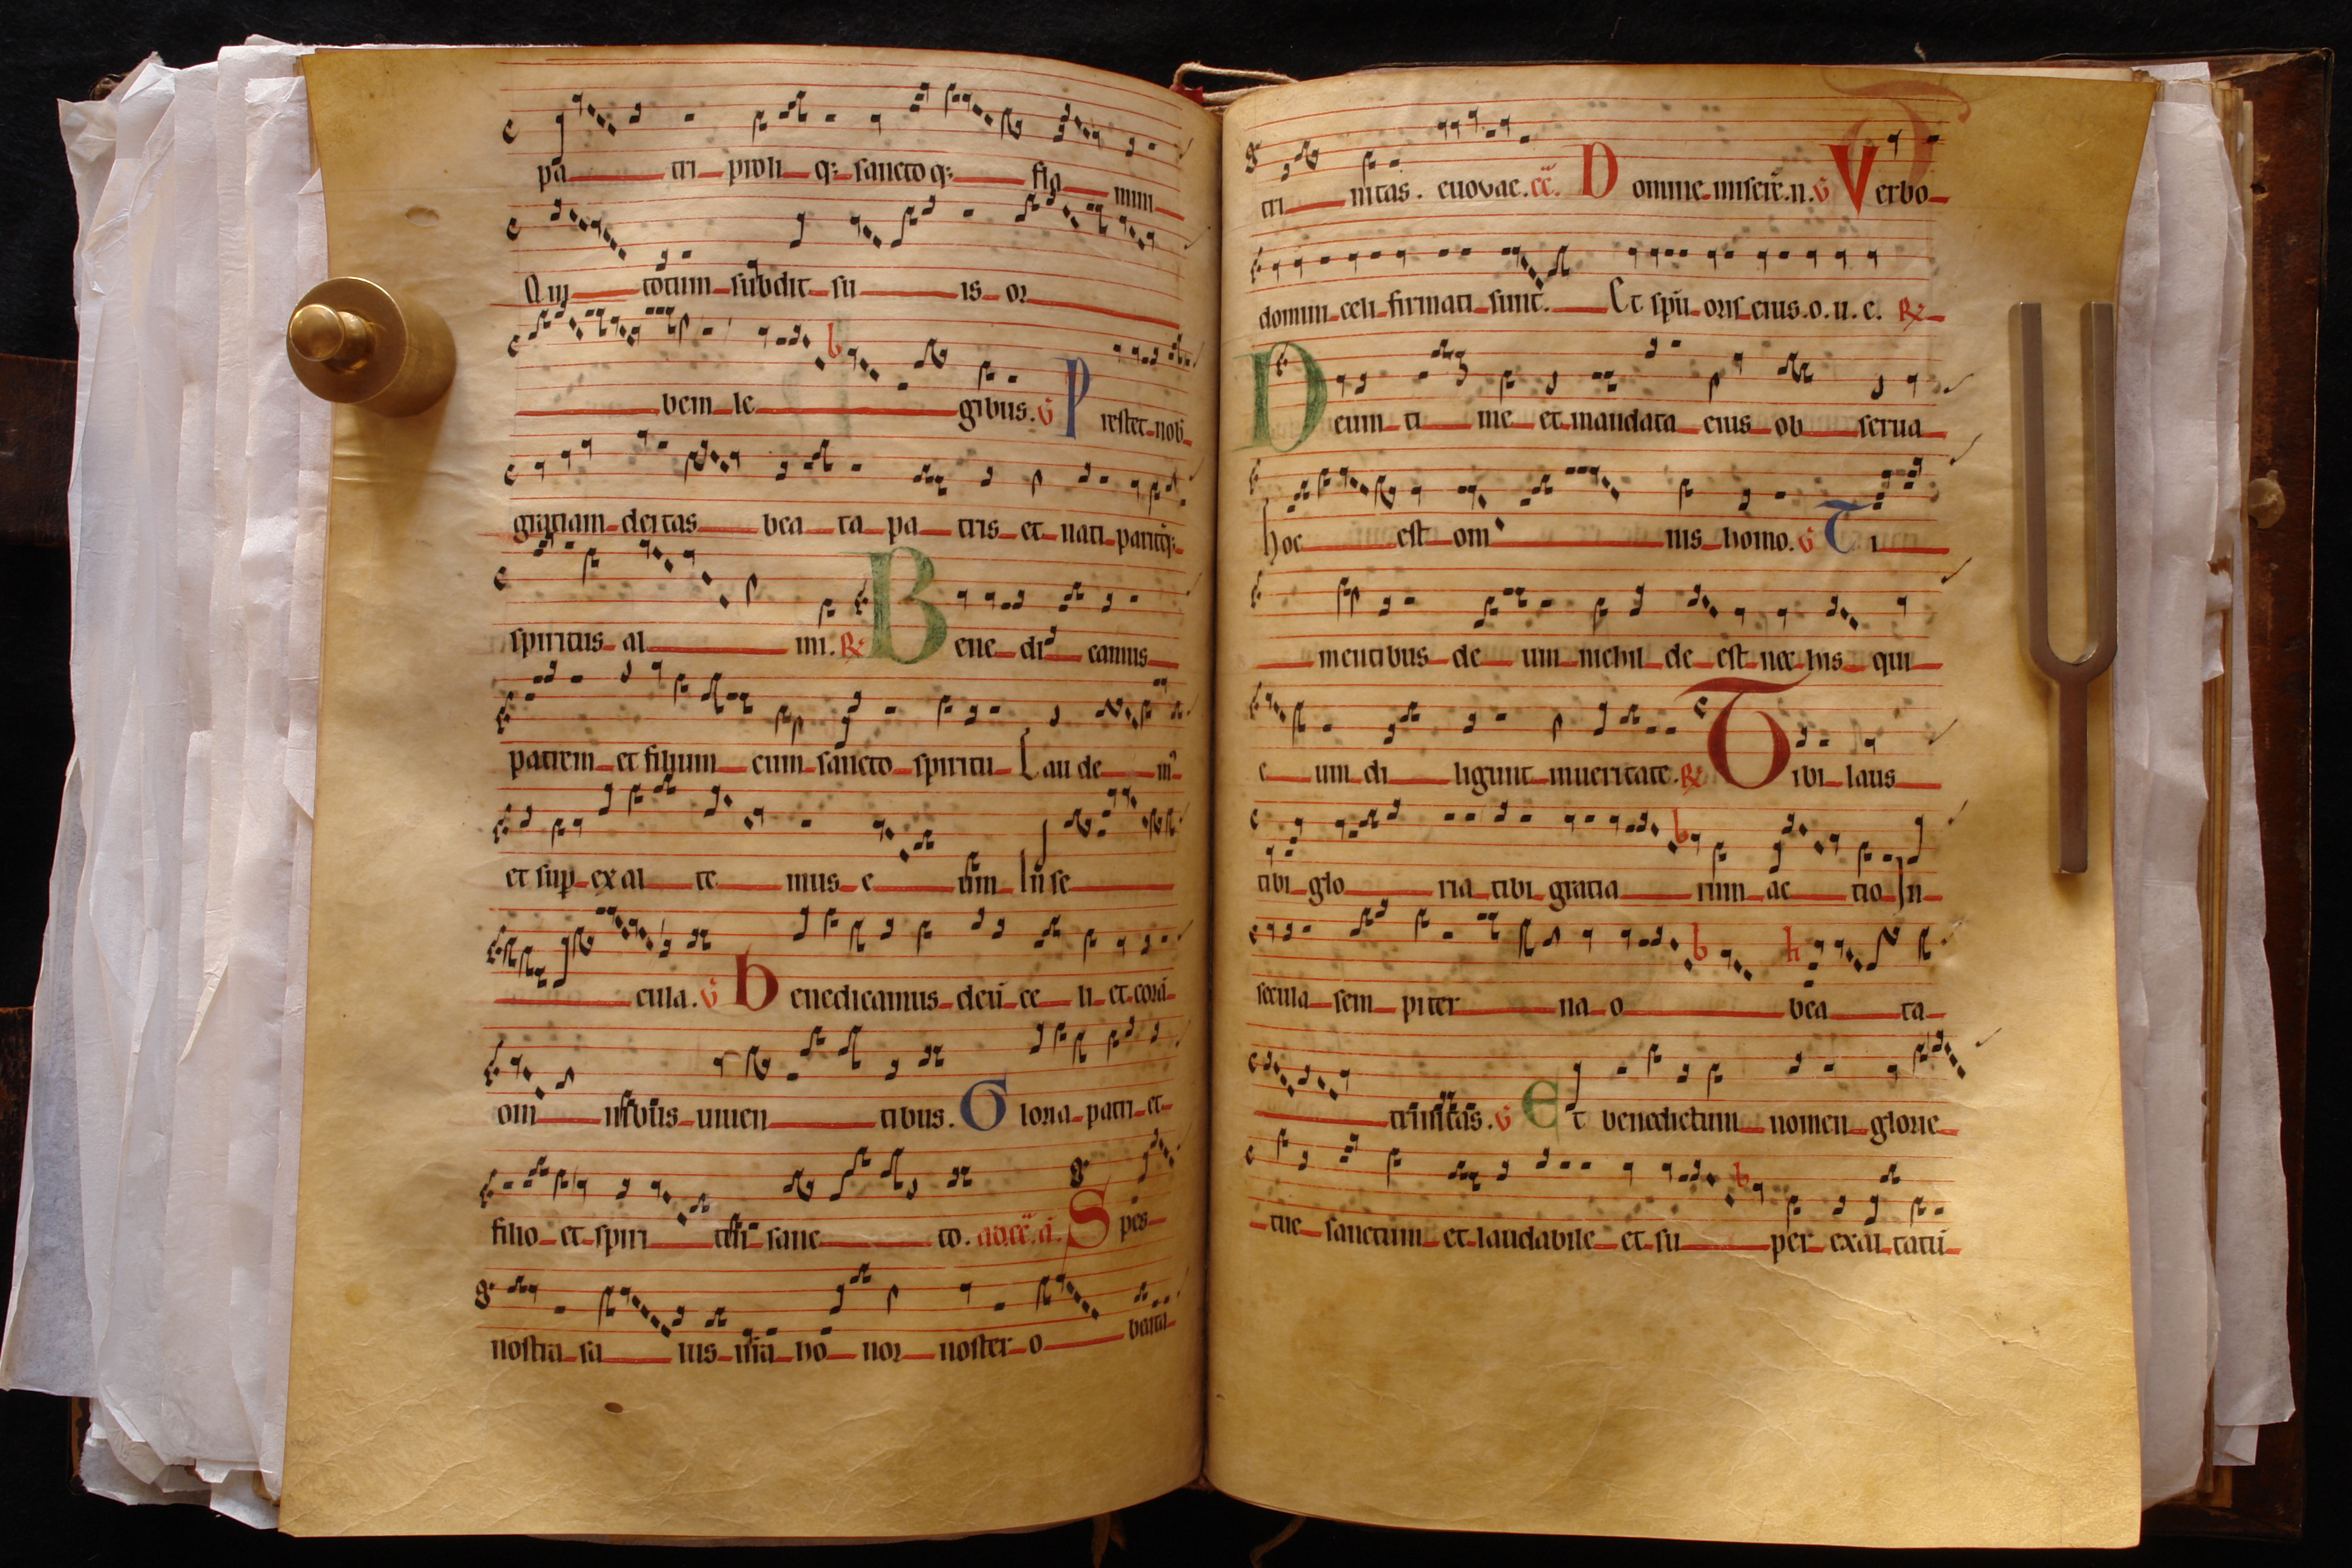 pa tri proli q; sancto q; fla mini
Qui totum subdit su is or
bem le gibus. V Prestet nob
gratiam deitas bea ta pa tris et nati pariterq;
spiritus al mi. R Bene di camus
patrem et filium cum sancto spiritu Lau de m
et sup ex al te mus e um In se
cula. V benedicamus deū ce li et corā
om nibus uiuen tibus. Gloria patri et
filio et spiri tui sanc to. Spes
nostra sa lus nra ho nor noster o beata
tri nitas. euovae. Domine misere. n. V Verbo
domini celi firmati sunt. Et spū oris eius. o. u. e. R
Deum ti me et mandata eius ob serua
hoc est om nis homo. V Ti
mentibus de um nichil de est nec his qui
e um di ligunt inueritate. R Tibi laus
tibi glo ria tibi gratia rum ac tio In
secula sem piter na o bea ta
trinitas. V Et benedictum nomen glorie
tue sanctum et laudabile et su per exal tatū